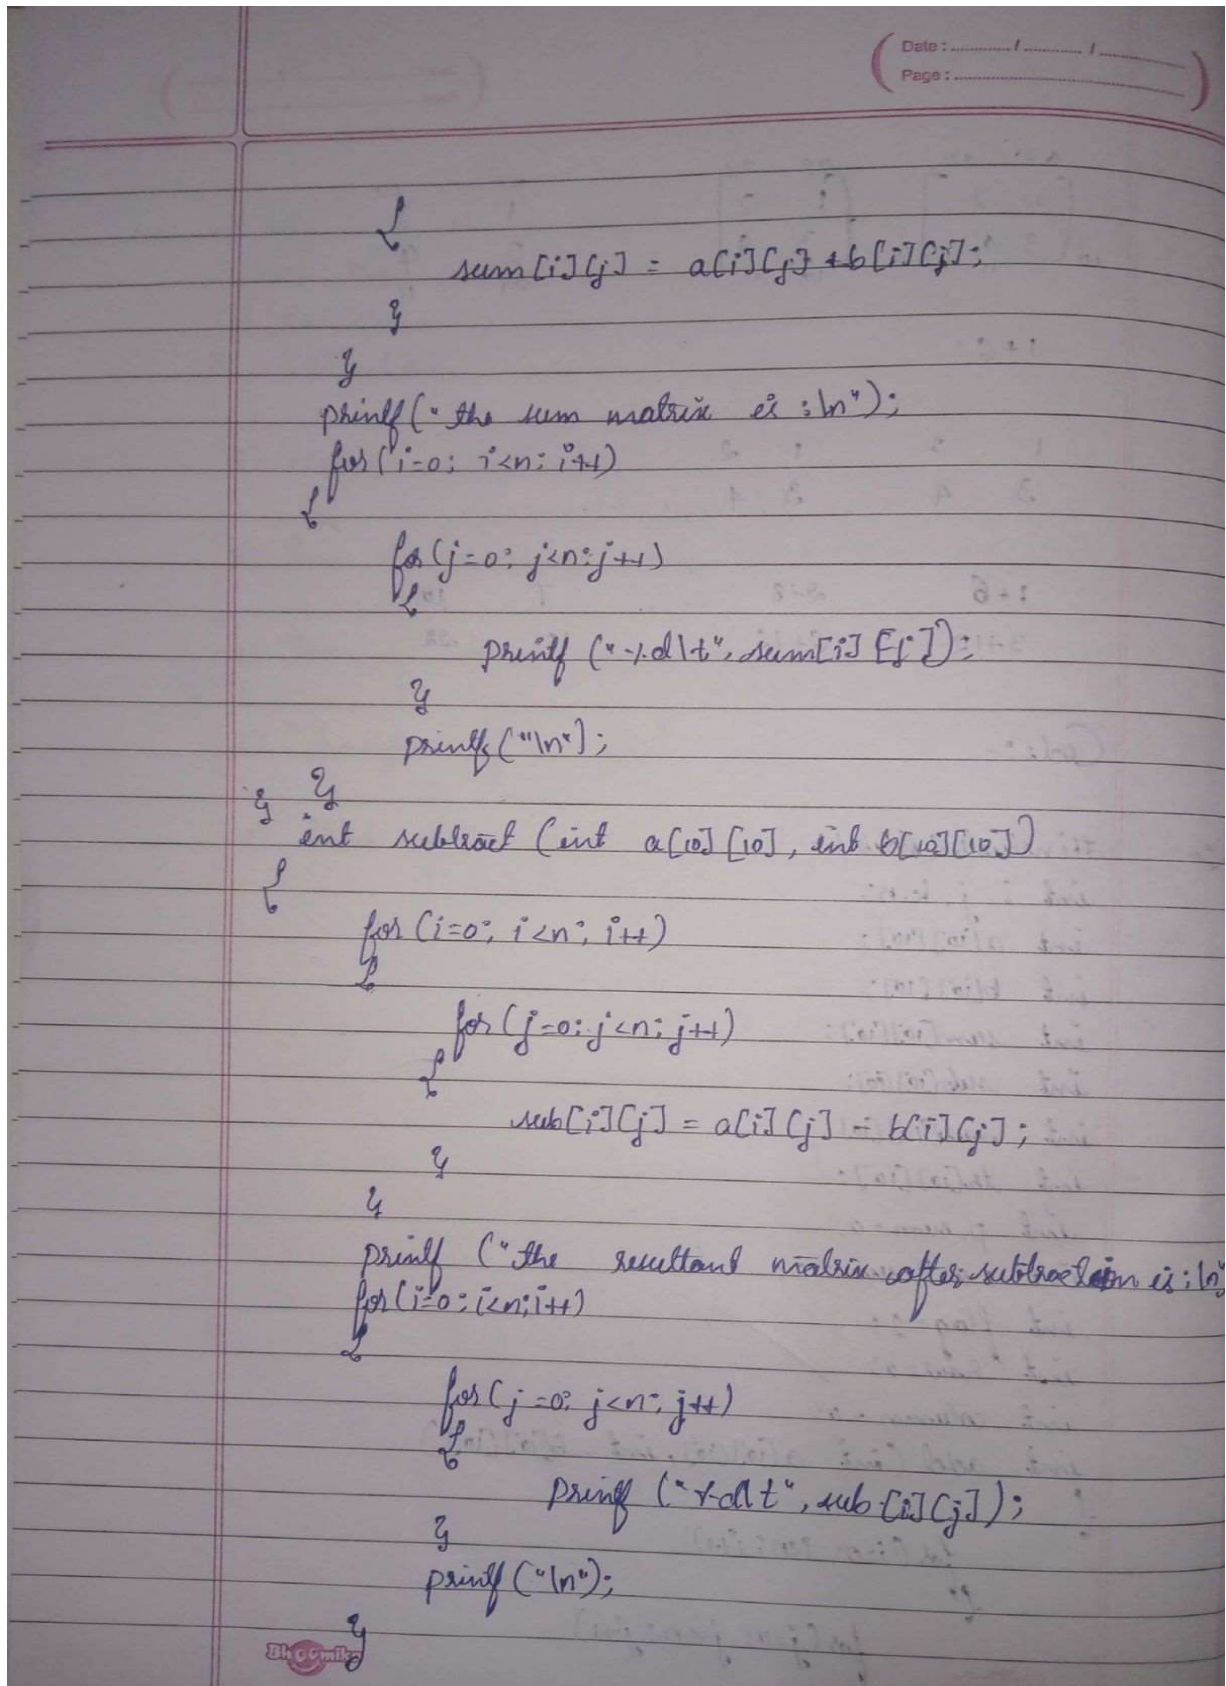 Date : ............ / ............ / ............
Page : ............
{
sum[i][j] = a[i][j] + b[i][j];
}
}
printf("the sum matrix is :\n");
for(i=0; i<n; i++)
{
for(j=0; j<n; j++)
{
printf("%d\t", sum[i][j]);
}
printf("\n");
}
}
int subtract (int a[10][10], int b[10][10])
{
for(i=0; i<n; i++)
{
for(j=0; j<n; j++)
{
sub[i][j] = a[i][j] - b[i][j];
}
}
printf ("the resultant matrix after subtraction is :\n"
for(i=0; i<n; i++)
{
for(j=0; j<n; j++)
{
printf ("%d\t", sub[i][j]);
}
printf("\n");
}
Bhoomika